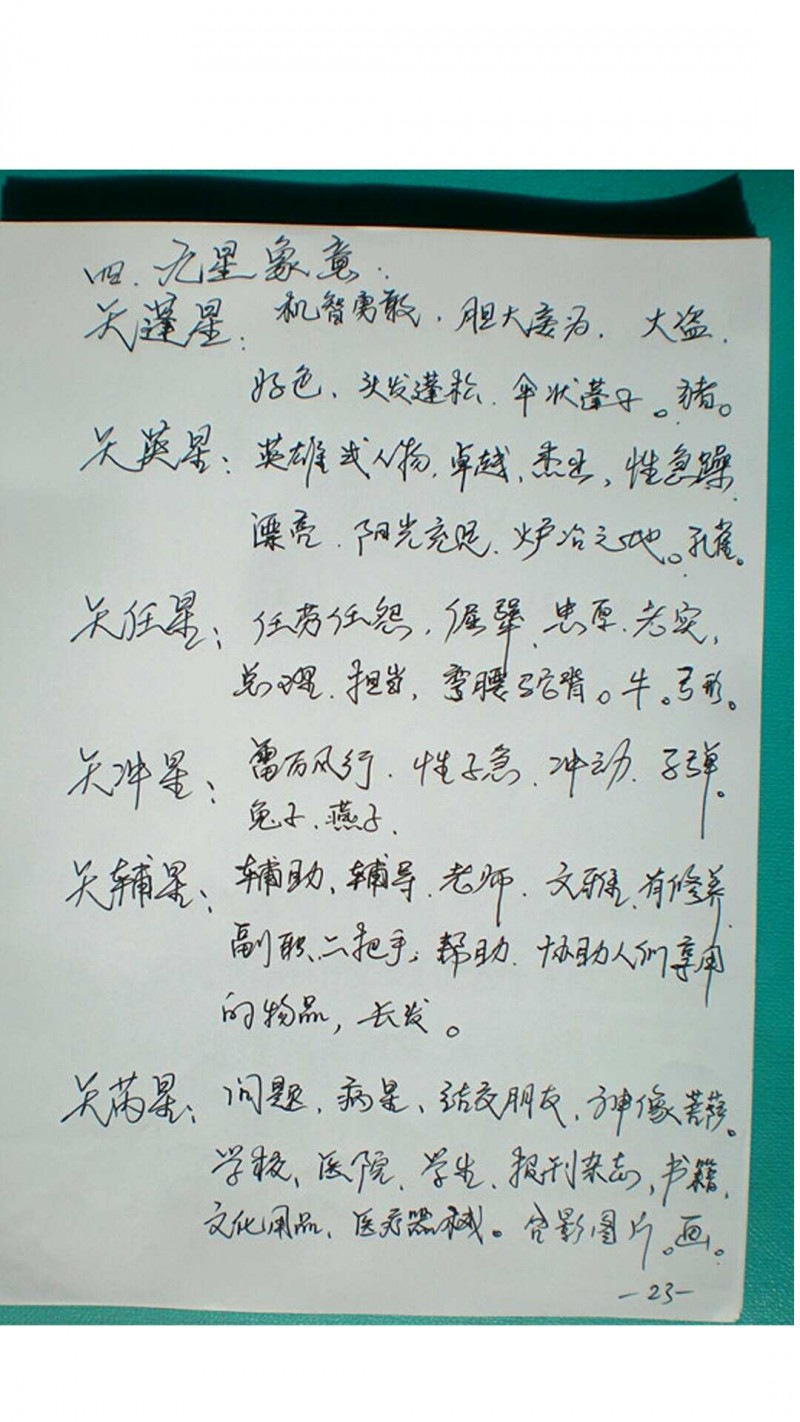 四、九星象意:
天蓬星: 机智勇敢、胆大妄为、大盗、
好色、头发蓬松、伞状蓬子。猪。
天英星: 英雄式人物、卓越、杰出,性急躁、
漂亮、阳光充足、炉冶之地。孔雀。
天任星; 任劳任怨,倔犟、忠厚、老实,
总理、担当,弯腰弓背。牛。弓形。
天冲星; 雷厉风行、性子急、冲动、子弹。
兔子、燕子、
天辅星; 辅助、辅导、老师、文雅、有修养、
副职二把手;帮助、协助人们享用
的物品,长发。
天芮星; 问题、病星、结交朋友,神像菩萨。
学校、医院、学生、报刊杂志,书籍、
文化用品、医疗器械。合影图片。画。
-23-